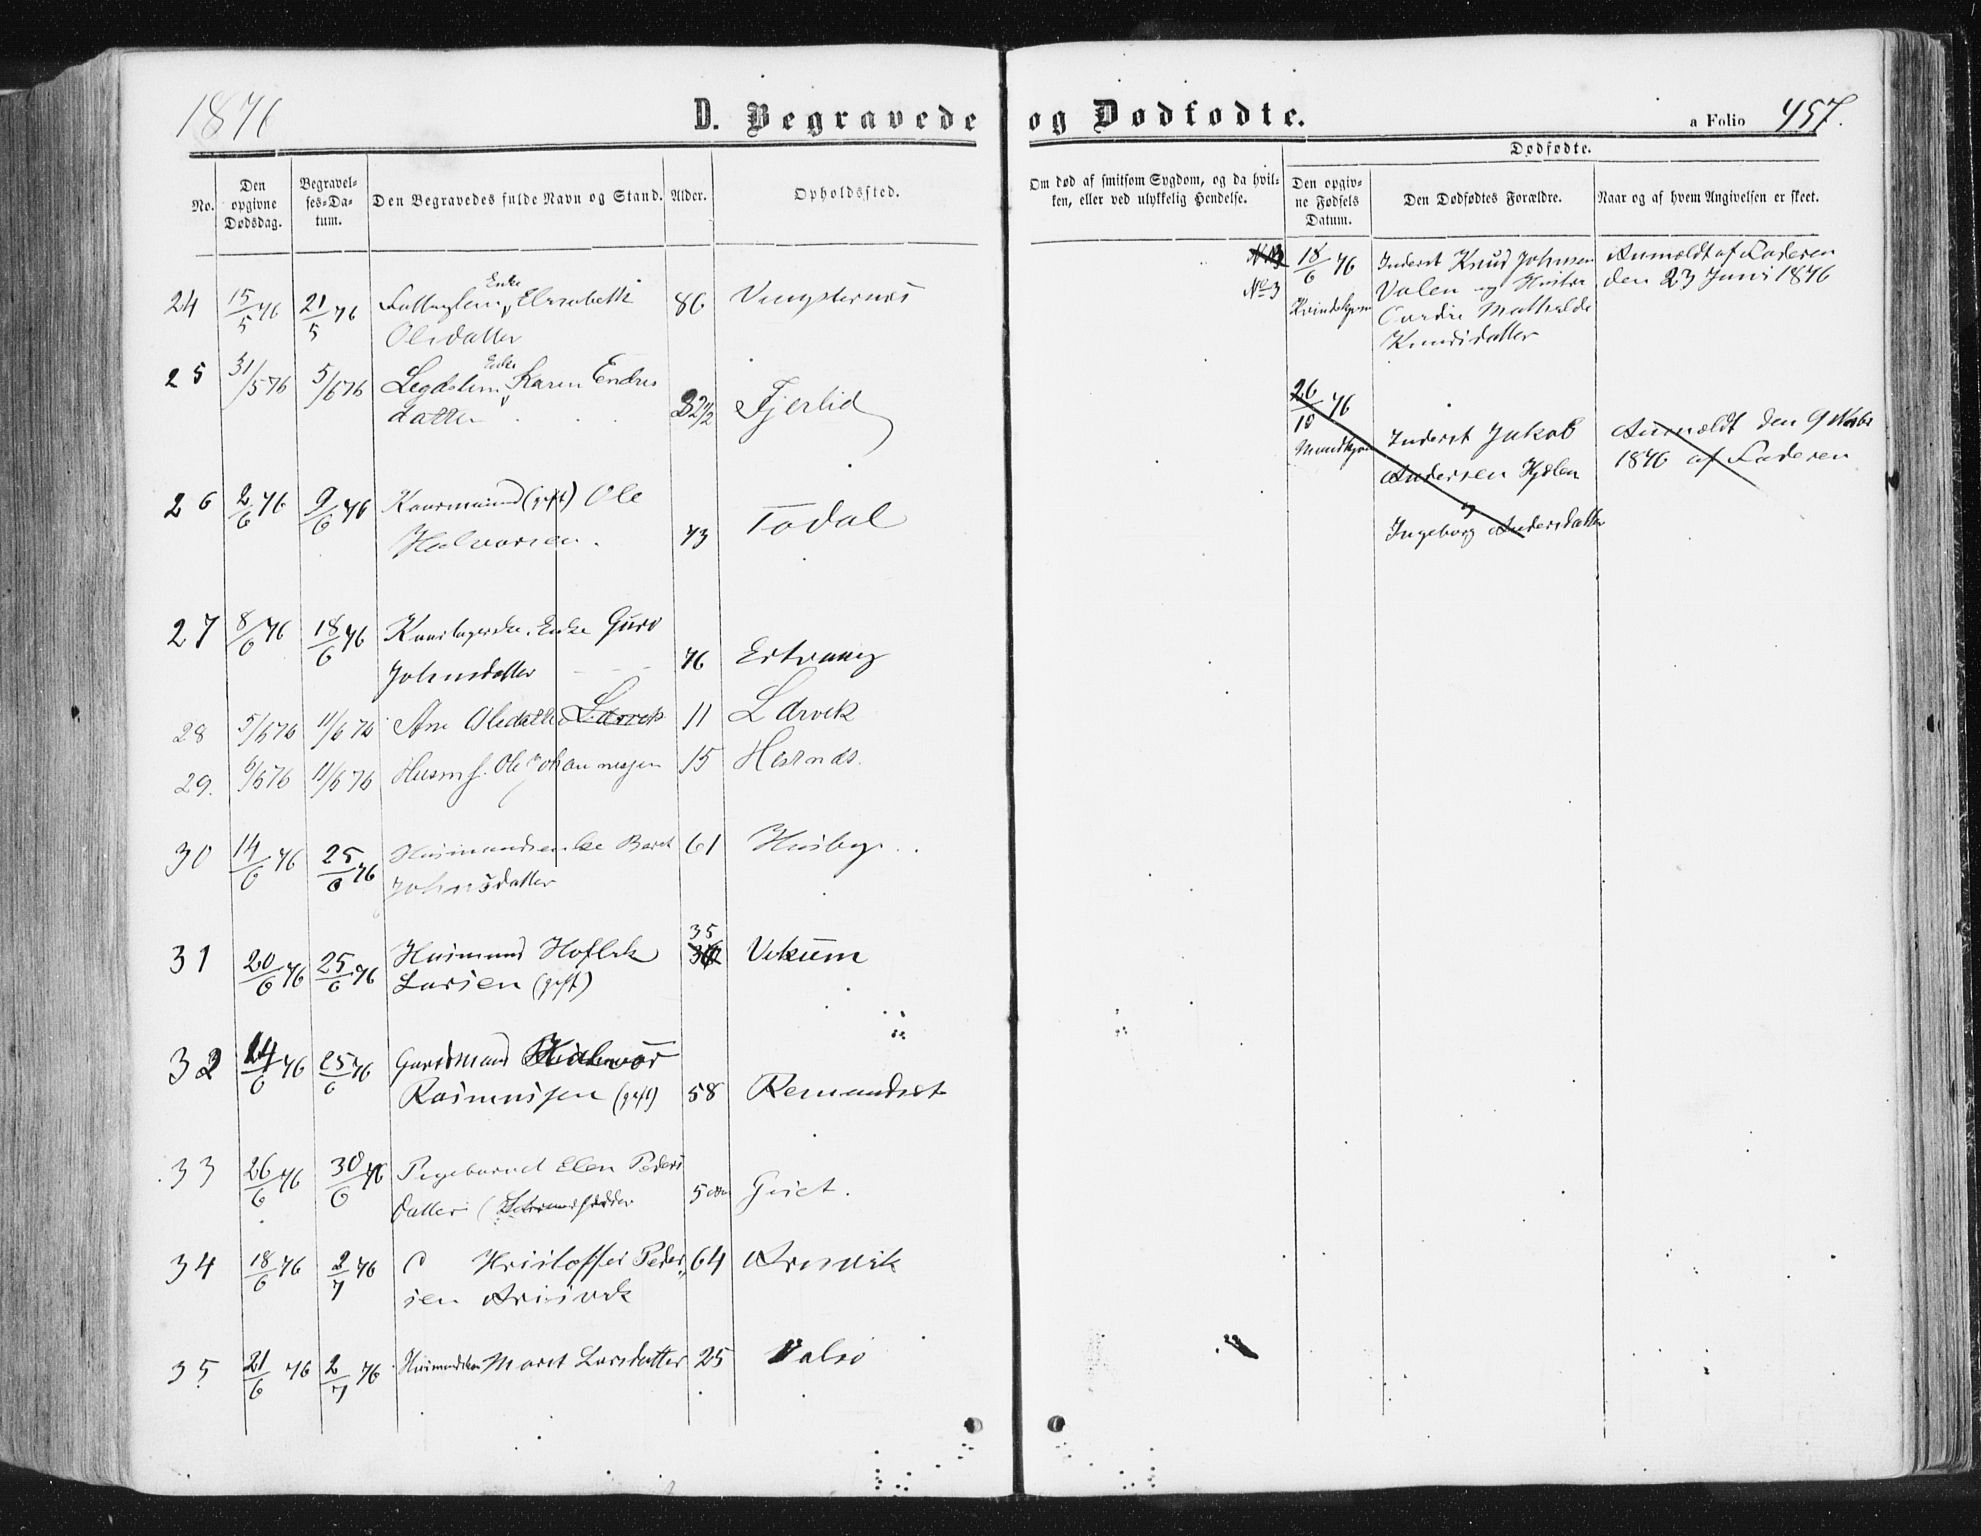 1876
D. Begravede og Dødfødte.
a Folio 457.
No.
Den opgivne Dødsdag.
Begravelses-Datum.
Den Begravedes fulde Navn og Stand.
Alder.
Opholdssted.
Om død af smitsom Sygdom, og da hvilken, eller ved ulykkelig Hendelse.
Dødfødte.
Den opgivne Fødsels Datum.
Den Dødfødtes Forældre.
Naar og af hvem Angivelsen er skeet.
24 15/5 76 21/5 76 Enke Elisabeth 86
Olsdatter
25 31/5 76 5/6 76 Legdslem Enke Karen Endres
datter 82 1/2 Fjerlid
26 2/6 76 9/6 76 Kaarmand (gift) Ole
Halvorsen. 73 Todal
27 8/6 76 18/6 76 Enke Guro
Johnsdatter 76
28 5/6 76 11/6 76 Ane Olsdatter Lervik 11 Lervik
29. 6/6 76 11/6 76 Husmf. Ole Johannesen 15 Hesnæs.
30 14/6 76 25/6 76 Husmandsenke Beret 61 Husby
Johnsdatter
31 20/6 76 25/6 76 Husmand 35 Vekum
Larsen (gift)
32 14/6 76 25/6 76 Gaardmand Halvor
Rasmussen (gift) 58
33 26/6 76 30/6 76 Pigebarnet Elen Peders
datter 5
34 18/6 76 2/7 76 Kristoffer Peder 64 Arsvik
sen Arisvik
35 21/6 76 2/7 76 Maret Larsdatter 25 Valsø
No 3 18/6 76 Inderst Knud Johnsen Anmeldt af Faderen
Kvindekjøn Valen og Hustru den 23 Juni 1876
Mathilde
Knudsdatter
26/10 76 Inderst Jakob Anmeldt den 9
Mandkjøn Andersen 1876 af Faderen
og
Ingeborg Andersdatter